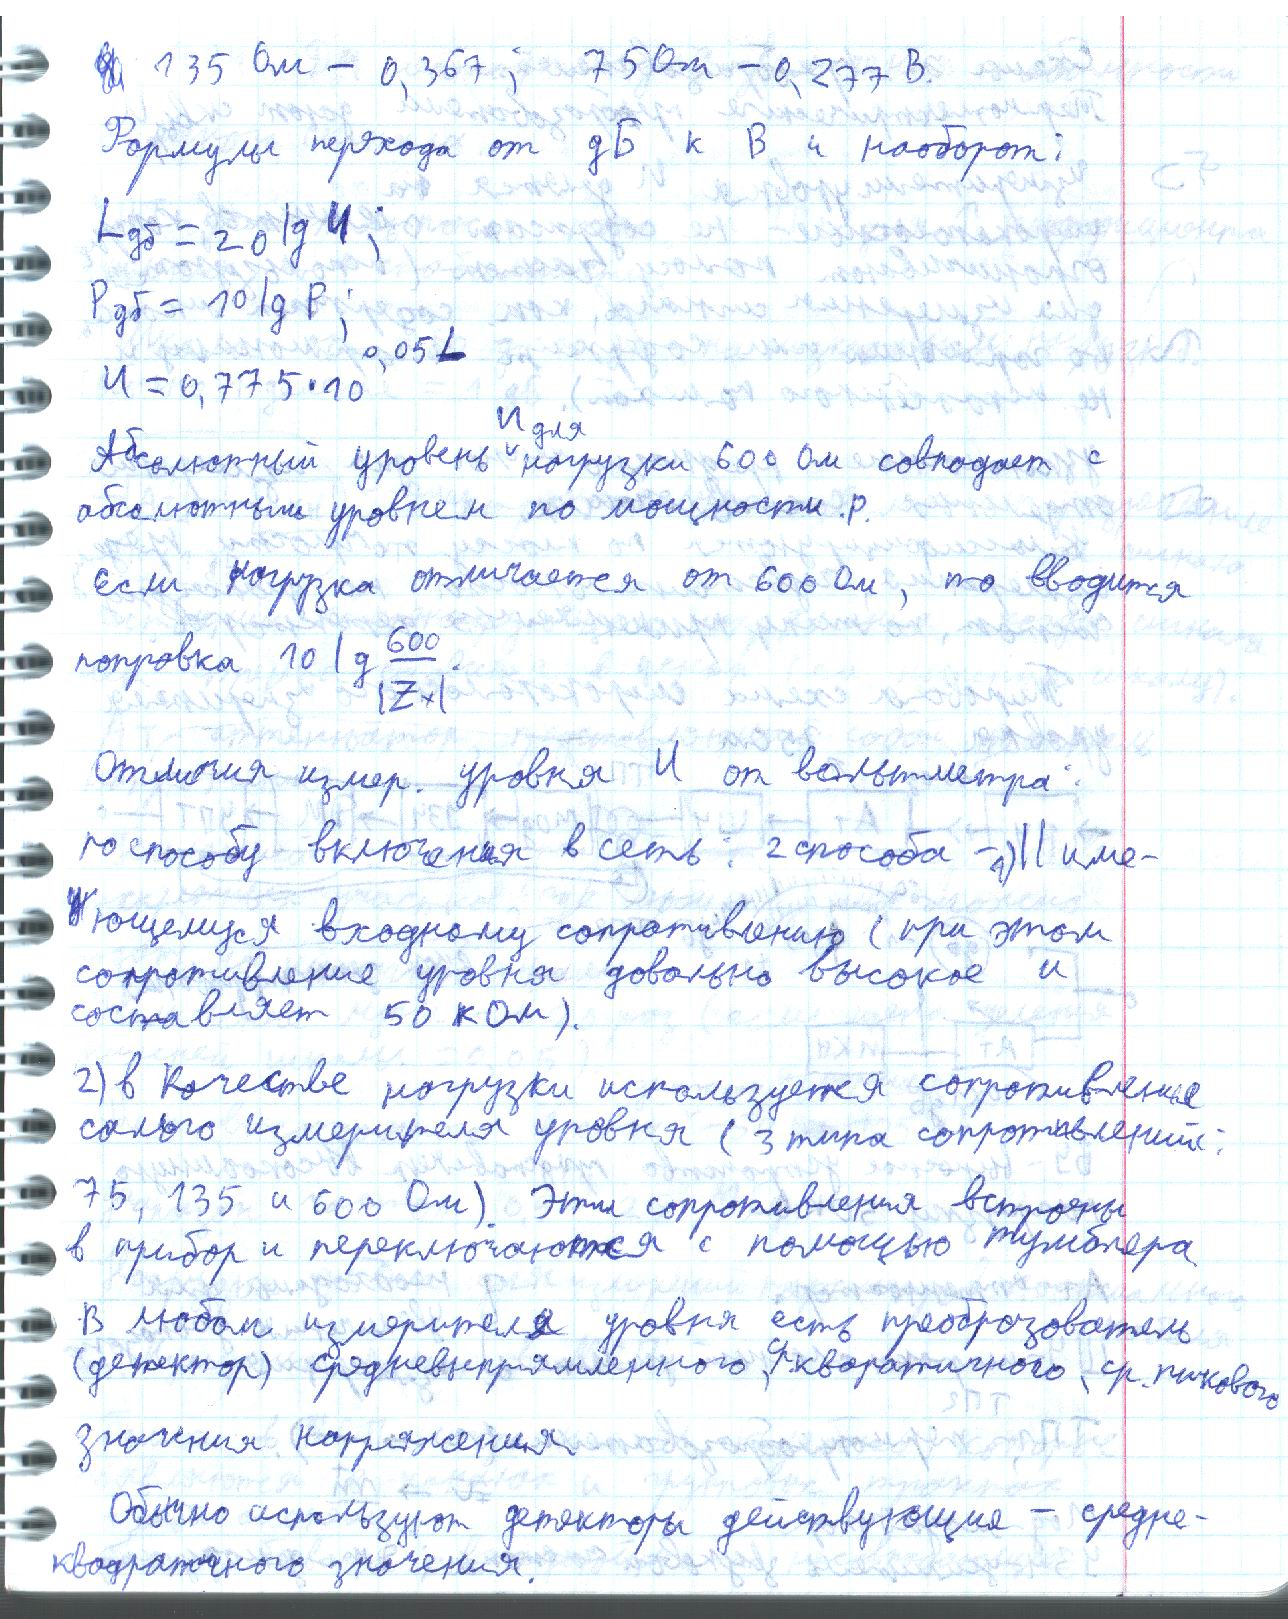 135 Ом – 0,367; 75 Ом – 0,277 В.
Формулы перехода от дБ к В и наоборот:
Lдб = 20 lg U;
Pдб = 10 lg P;
U = 0,775·10^0,05L
Абсолютный уровень U для нагрузки 600 Ом совпадает с
абсолютным уровнем по мощности P.
Если нагрузка отличается от 600 Ом, то вводится
поправка 10 lg 600/|Zx|.
Отличия измер. уровня U от вольтметра:
по способу включения в сеть: 2 способа – 1) || име-
ющемуся входному сопротивлению (при этом
сопротивление уровня довольно высокое и
составляет 50 кОм).
2) в качестве нагрузки используется сопротивление
самого измерителя уровня (3 типа сопротивлений:
75, 135 и 600 Ом). Эти сопротивления встроены
в прибор и переключаются с помощью тумблера
В любом измерителе уровня есть преобразователь
(детектор) средневыпрямленного, ср. квадратичного, ср. пикового
значения напряжения.
Обычно используют детекторы действующие – средне-
квадратичного значения.